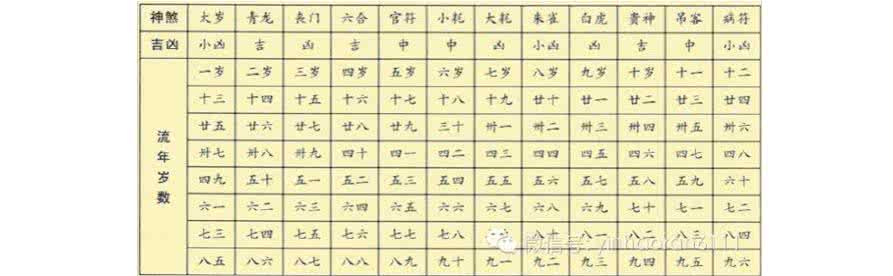 神煞 太岁 青龙 丧门 六合 官符 小耗 大耗 朱雀 白虎 贵神 吊客 病符
吉凶 小凶 吉 凶 吉 中 中 凶 小凶 凶 吉 中 小凶
流年岁数
一岁 二岁 三岁 四岁 五岁 六岁 七岁 八岁 九岁 十岁 十一 十二
十三 十四 十五 十六 十七 十八 十九 廿十 廿一 廿二 廿三 廿四
廿五 廿六 廿七 廿八 廿九 三十 卅一 卅二 卅三 卅四 卅五 卅六
卅七 卅八 卅九 四十 四一 四二 四三 四四 四五 四六 四七 四八
四九 五十 五一 五二 五三 五四 五五 五六 五七 五八 五九 六十
六一 六二 六三 六四 六五 六六 六七 六八 六九 七十 七一 七二
七三 七四 七五 七六 七七 七八 八一 八二 八三 八四
八五 八六 八七 八八 八九 九十 九一 九二 九三 九四 九五 九六
微信号: